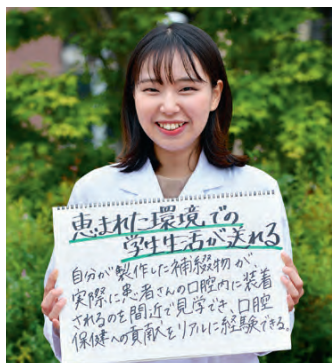 恵まれた環境での
学生生活が送れる
自分が製作した補綴物が、
実際に患者さんの口腔内に装着
されるのを間近で見学でき、口腔
保健への貢献をリアルに経験できる。